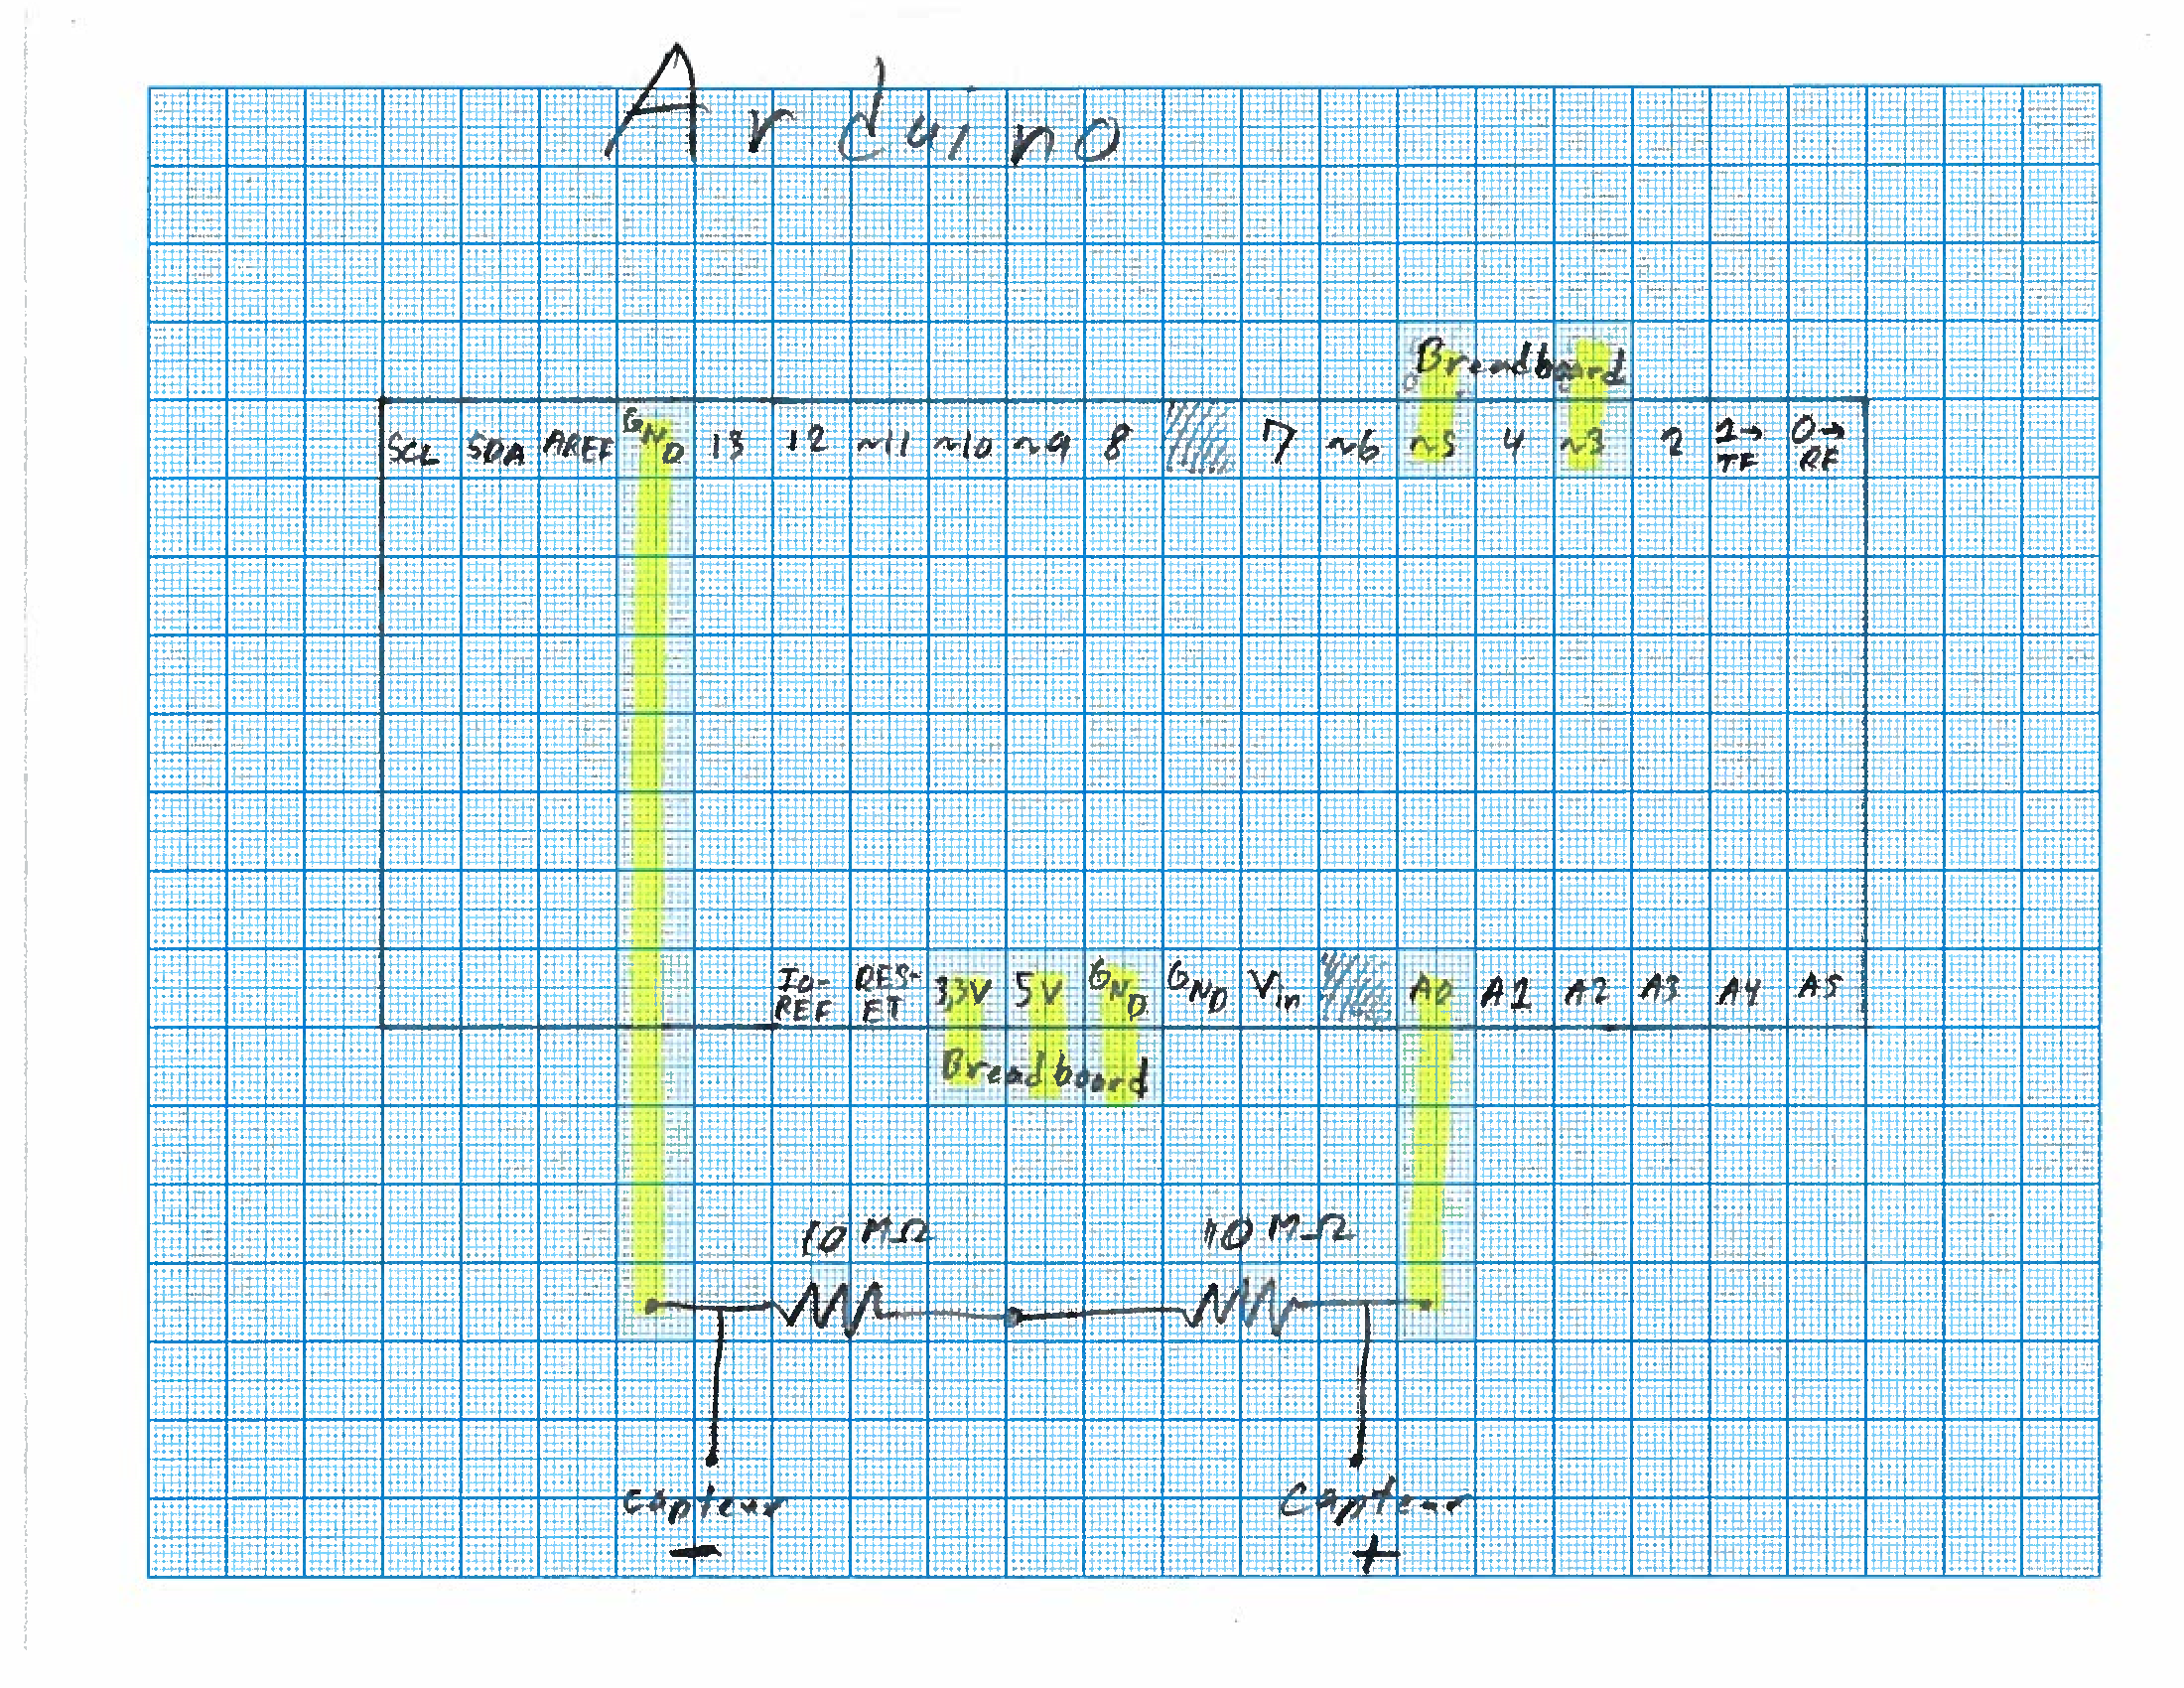 Arduino
Breadboard
SCL SDA AREF GND 13 12 ~11 ~10 ~9 8 7 ~6 ~5 4 ~3 2 1→ 0→
TF RF
IO- RES- 3,3V 5V GND GND Vin A0 A1 A2 A3 A4 A5
REF ET
Breadboard
10 MΩ 10 MΩ
Capteur Capteur
- +